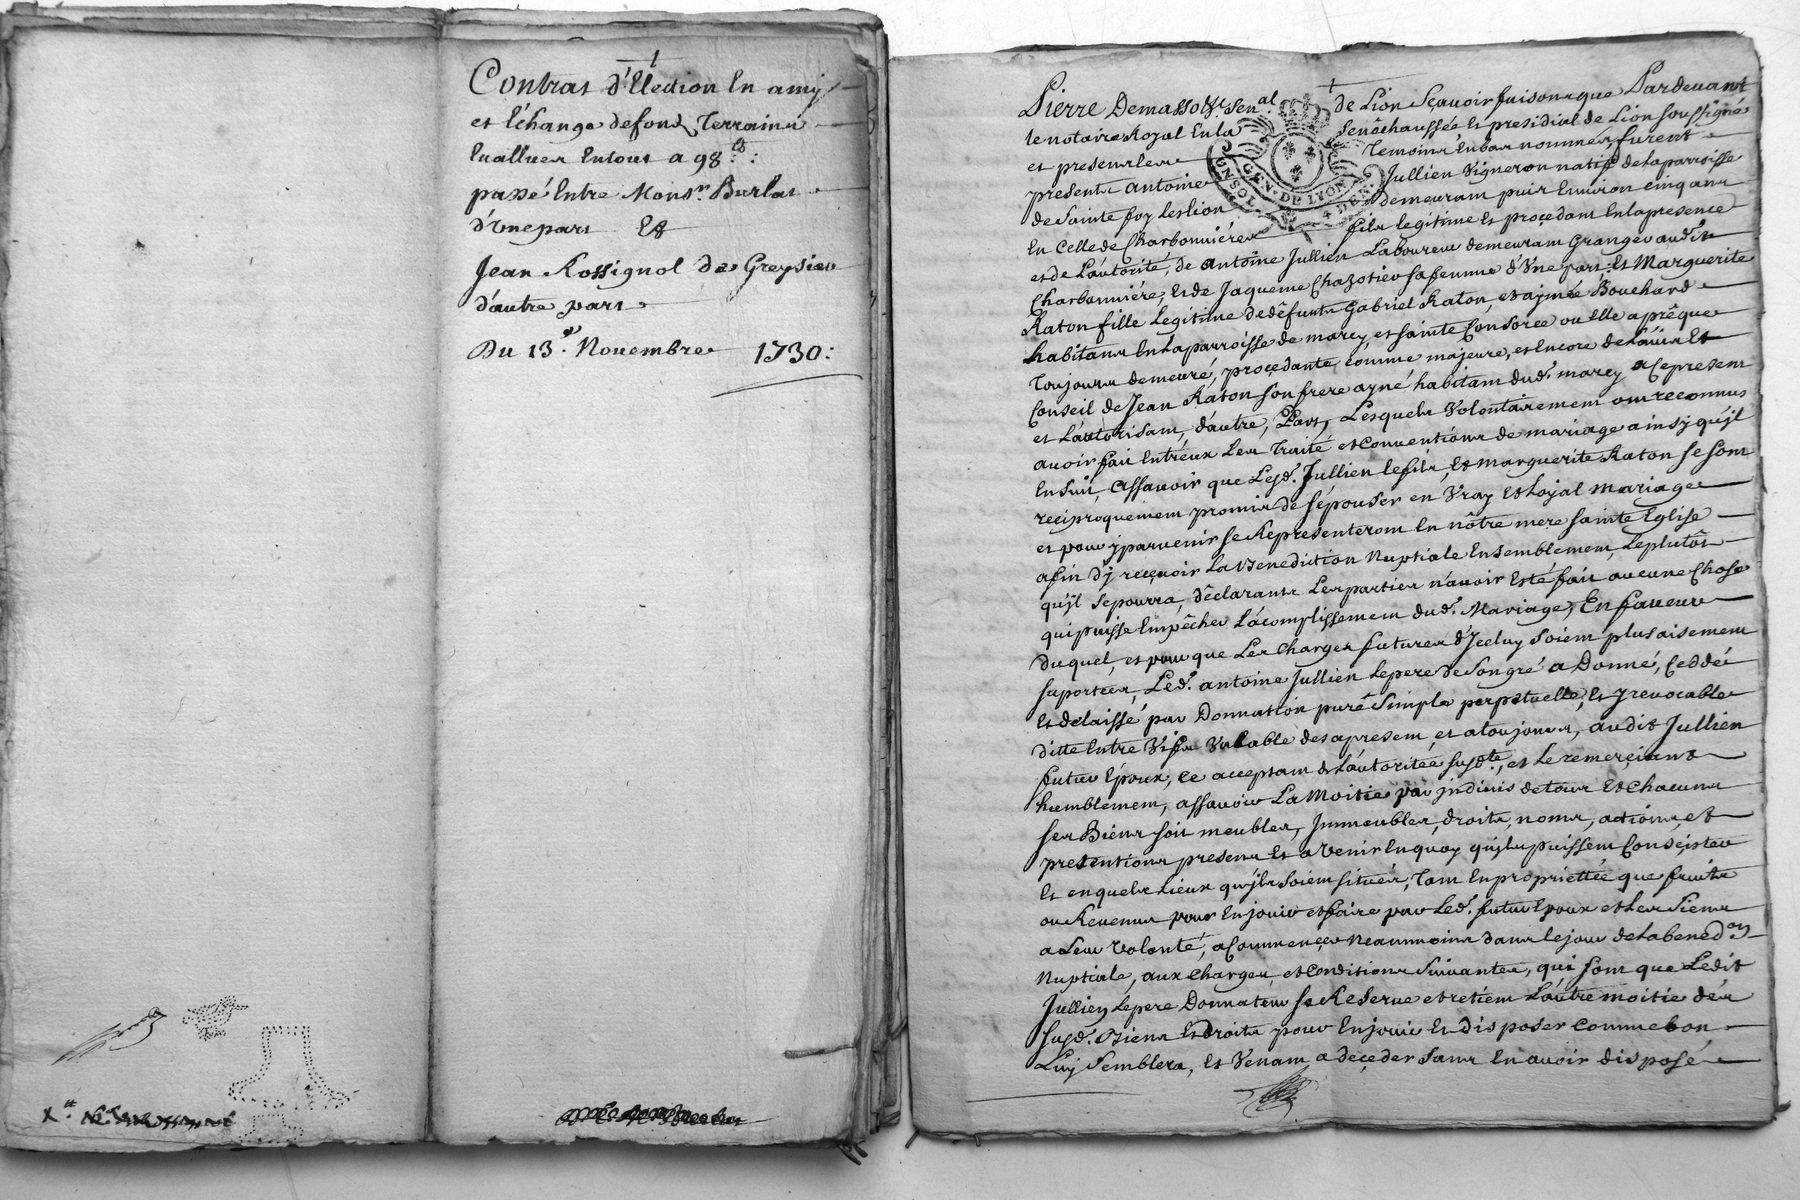 Contras d'Election En amy
et Echange de fond Terrains
Evallués Ensous a 98  lt :
passé Entre Monsr. Burlat
d'Vne pars Et
Jean Rossignol De Greysieu
d'autre pars
Du 13e. Nouembre 1730 :
Pierre Demasso Sénal. de Lion Sçauoir faisons que Pardeuant
le notaire Royal En la Senêchaussée Et presidial de Lion soussigné
et presens les Temoins En bas nommés furent
presents Antoine Jullien Vigneron natif de la parroisse
de Sainte foy Les Lion demeurant puis Enuiron cinq ans
En Celle de Charbonniéres fils legitime Et proçedant En la presence
et de L'autorité, de Antoine Jullien Laboureur demeurant Granger audit
Charbonniére, Et de Jaqueme Chazotier sa femme d'Vne part : Et Marguerite
Raton fille Legitime de défunts Gabriel Raton, et aymée Bouchard
habitans En la parroisse de marcy, et sainte Consorce ou Elle a prêque
Toujours demeuré, proçedante comme majeure, et Encore de L'auis Et
Conseil de Jean Raton son frere ayné habitant dud. marcy a Ce present
et L'autorisant, d'autre, Part, Lesquels Volontairement ont reconnus
auoir fait Entreux Les Traité et Conuentions de mariage ainsy qu'jl
Ensuit, Assauoir que Lesd. Jullien le fils, Et marguerite Raton se sont
reciproquement promis de s'épouser en Vray Et Loyal mariage
et pour y paruenir se Representeront En nôtre mere sainte Eglise
afin d'y reçeuoir La Benediction Nuptiale Ensemblement, Le plutôt
qu'jl se pourra, déclarants Les parties n'auoir Esté fait aucune Chose
qui puisse Empêcher L'acomplissement dud. Mariage, En faueur
duquel, et pour que Les Charges futures d'Jceluy soient plus aisement
suportées, Led. antoine Jullien Le pere de son gré a Donné, Ceddé
Et delaissé par Donnation pure Simple perpetuelle, Et jrreuocable
ditte Entre Vifs Valable des apresent, et a toujours, audit Jullien
futur Epoux, ce acceptant de L'autoritée susdte., et Le remerçiant
humblement, assauoir La Moitié par jndiuis de tous Et Chacuns
ses Biens soit meubles, Immeubles, droits, noms, actions, et
pretentions presens Et a Venir En quoy qu'jls puissent Consçister
Et en quels Lieux qu'jls soient situés, Tant En propriettée que fruits
ou Reuenus pour En jouir et faire par Led. futur Epoux et Les Siens
a Leur Volonté, a Commençer neanmoins dans le jour de La bened.on
Nuptiale, aux Charges, et Conditions suiuantes, qui sont que Ledit
Jullien Le pere Donnateur se Reserue et retient L'autre moitié des
susd. Biens Et droits pour En jouir Et disposer comme bon
Luy semblera, Et Venant a deçeder sans En auoir disposé